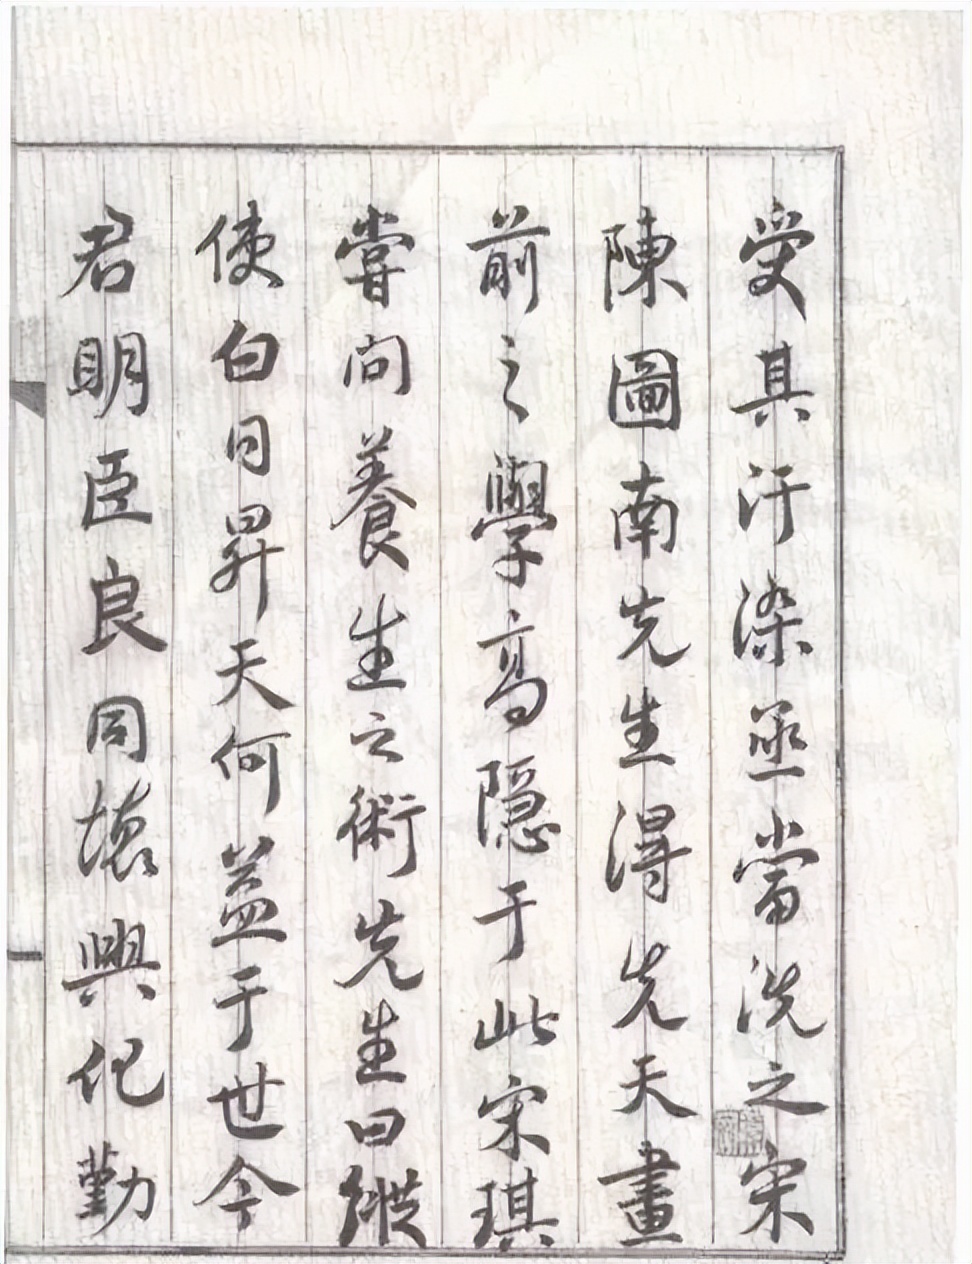 受其汙染亟當洗之宋
陳圖南先生得先天畫
前之學髙隠于此宋琪
嘗问養生之術先生曰縱
使白日昇天何益于世今
君明臣良同㥲興化勤